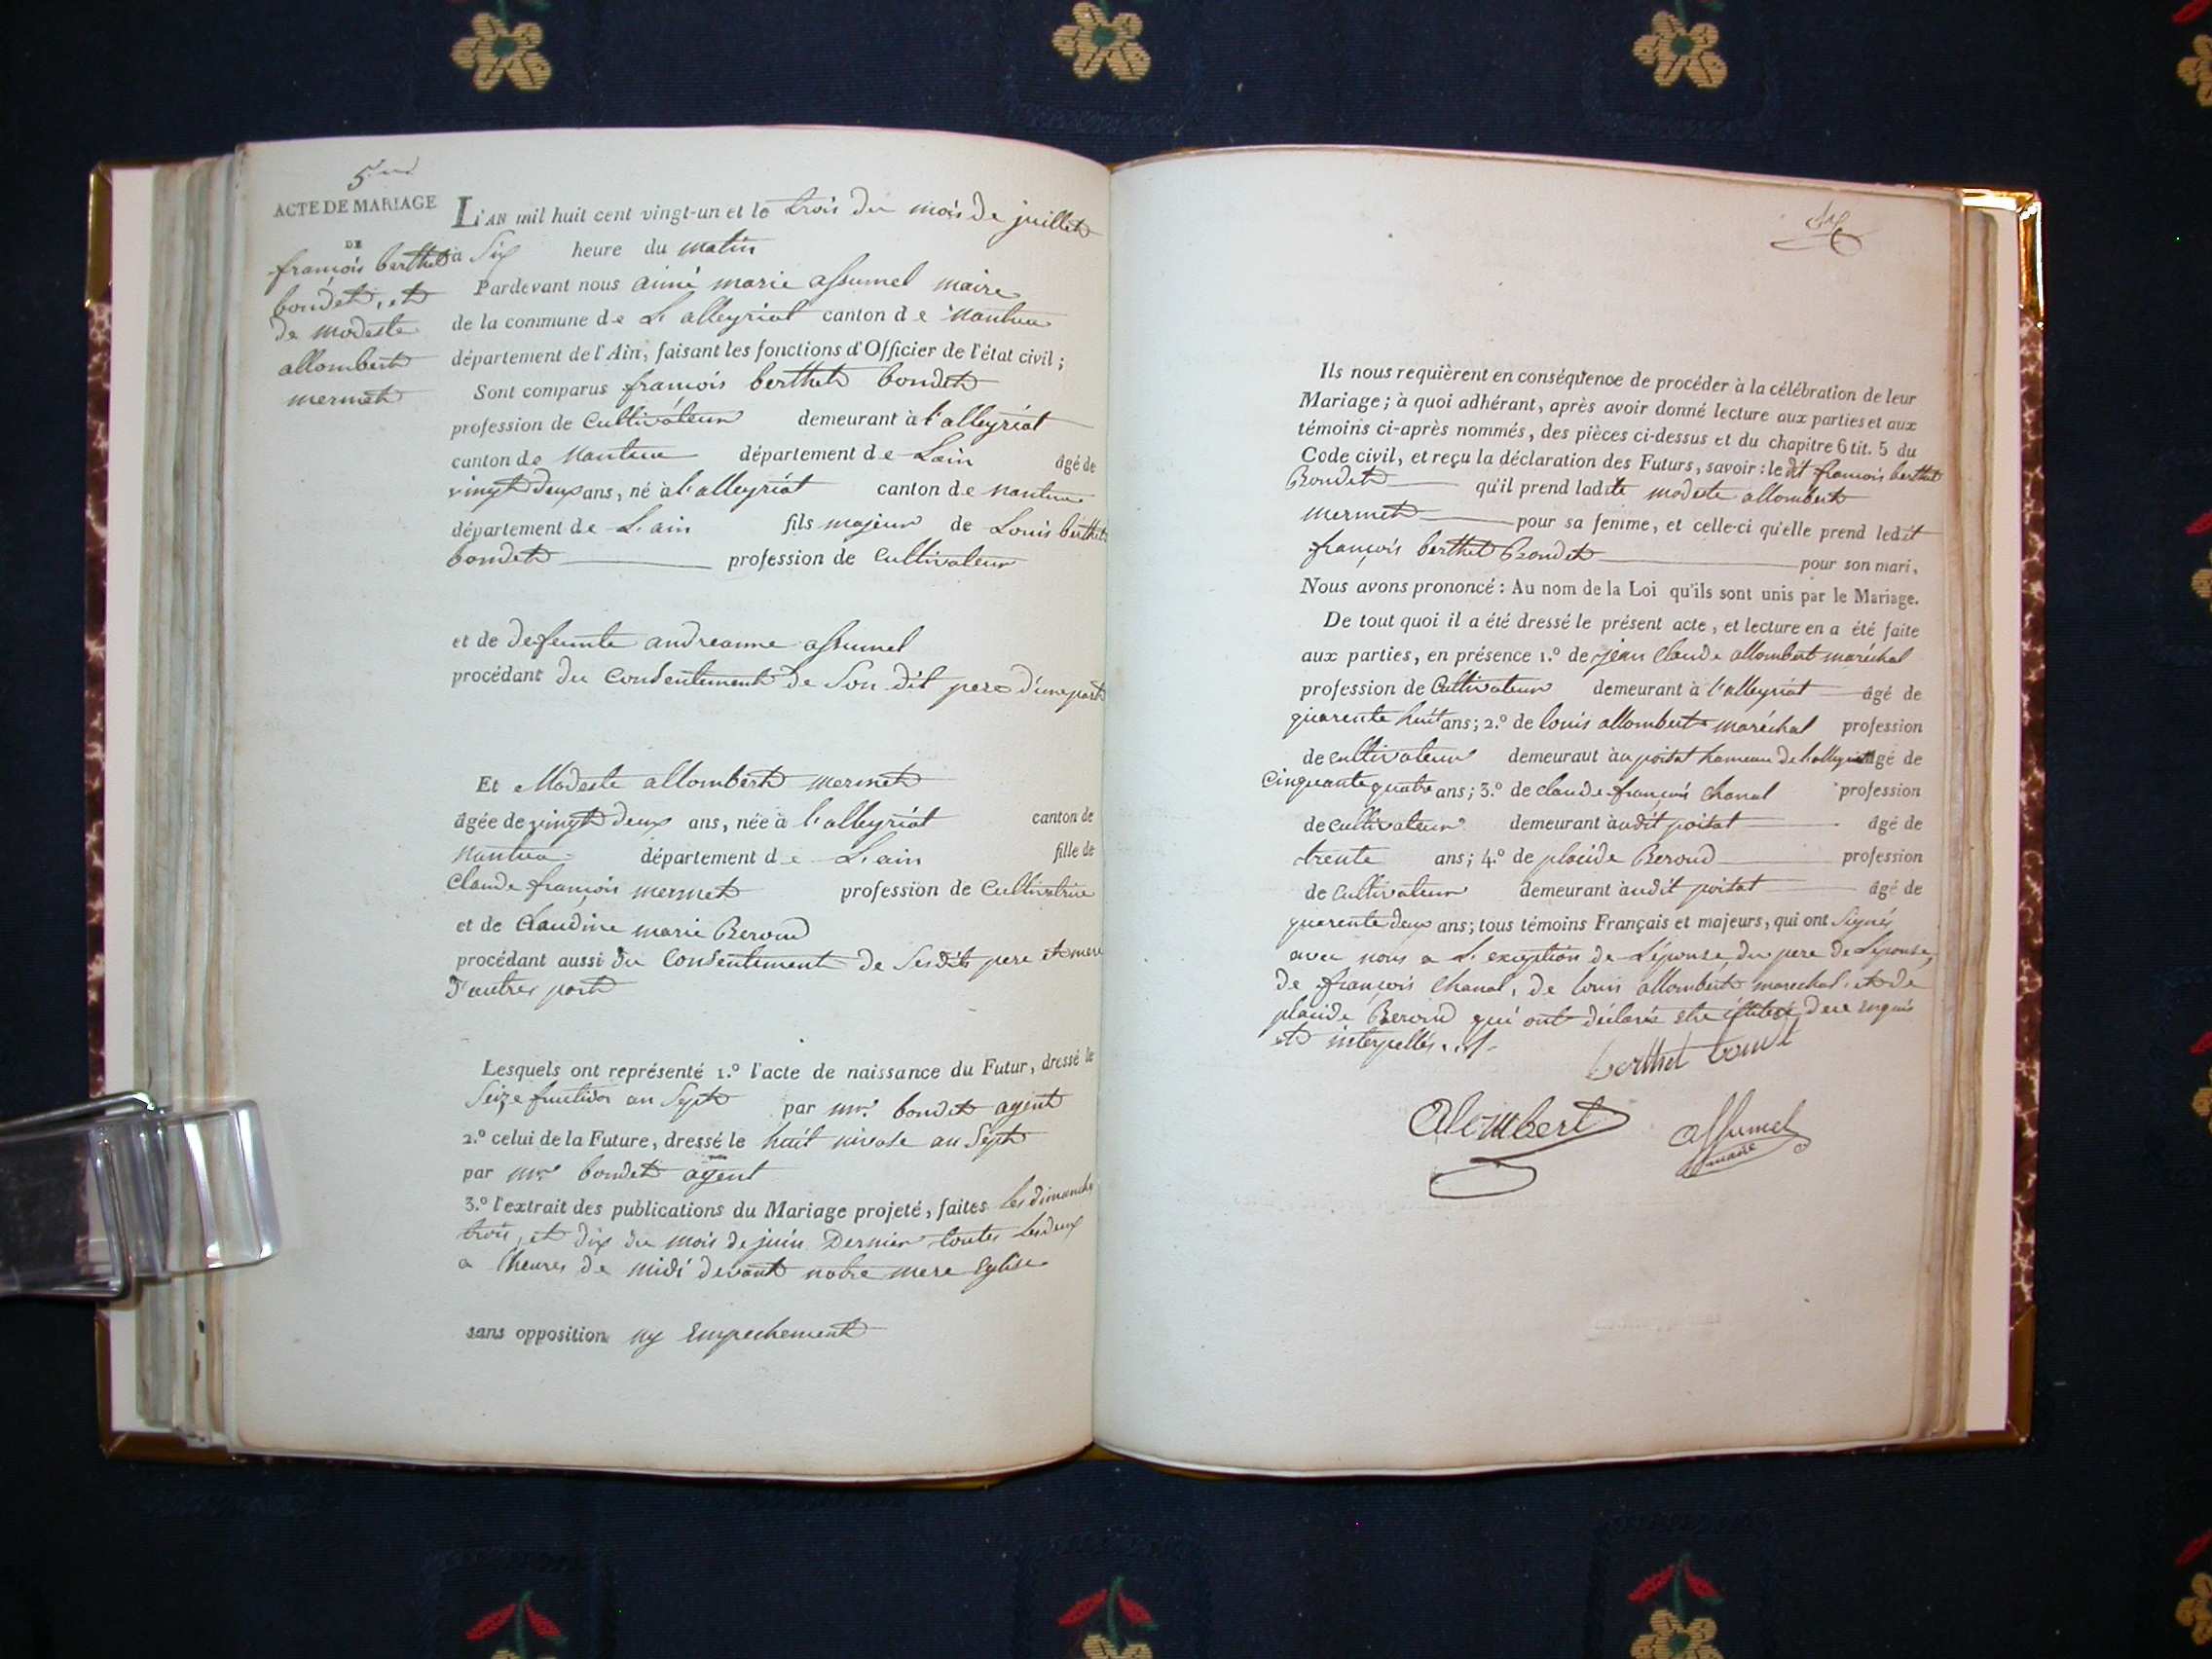 5me
ACTE DE MARIAGE
DE
françois berthet
bondet, et
de modeste
allombert
mermet
L'AN mil huit cent vingt-un et le trois du mois de juillet
à Six heure du matin
Pardevant nous aimé marie assumel maire
de la commune de L'alleyriat canton de Nantua
département de l'Ain, faisant les fonctions d'Officier de l'état civil;
Sont comparus françois berthet bondet
profession de Cultivateur demeurant à l'alleyriat
canton de Nantua département de Lain âgé de
vingt deux ans, né à l'alleyriat canton de nantua
département de L'ain fils majeur de Louis berthet
bondet profession de Cultivateur
et de defeunte andreanne assumel
procédant du Consentement de Son dit pere d'une part
Et Modeste allombert mermet
âgée de vingt deux ans, née à l'alleyriat canton de
Nantua département de L'ain fille de
Claude françois mermet profession de Cultivatrice
et de Claudine marie Beroud
procédant aussi du Consentement de Sesdits pere et mere
d'autres part
Lesquels ont représenté 1.º l'acte de naissance du Futur, dressé le
Seize fructidor an Sept par mr. bondet agent
2.º celui de la Future, dressé le huit nivose an Sept
par mr. bondet agent
3.º l'extrait des publications du Mariage projeté, faites les dimanche
trois, et dix du mois de juin Dernier toutes les deux
a lheures de midi devant notre mere Eglise
sans opposition ny Empechement
Ils nous requièrent en conséquence de procéder à la célébration de leur
Mariage; à quoi adhérant, après avoir donné lecture aux parties et aux
témoins ci-après nommés, des pièces ci-dessus et du chapitre 6 tit. 5 du
Code civil, et reçu la déclaration des Futurs, savoir: le dit françois berthet
Bondet qu'il prend ladite modeste allombert
mermet pour sa femme, et celle-ci qu'elle prend ledit
françois berthet Bondet pour son mari.
Nous avons prononcé: Au nom de la Loi qu'ils sont unis par le Mariage.
De tout quoi il a été dressé le présent acte, et lecture en a été faite
aux parties, en présence 1.º de jean Claude allombert maréchal
profession de Cultivateur demeurant à l'alleyriat âgé de
quarente huit ans; 2.º de louis allombert maréchal profession
de cultivateur demeurant à au poisat hameau de l'alleyriat âgé de
Cinquante quatre ans; 3.º de claude françois chanal profession
de cultivateur demeurant àudit poisat âgé de
trente ans; 4.º de placide Beroud profession
de cultivateur demeurant àudit poisat âgé de
quarente deux ans; tous témoins Français et majeurs, qui ont Signés
avec nous a L'exception de Lépouse, du pere de Lépouse,
de françois chanal, de louis allombert marechal et de
placide Beroud qui ont déclarés etre de ce enquis
et interpellés
berthet bondet
Alombert
assumel
maire